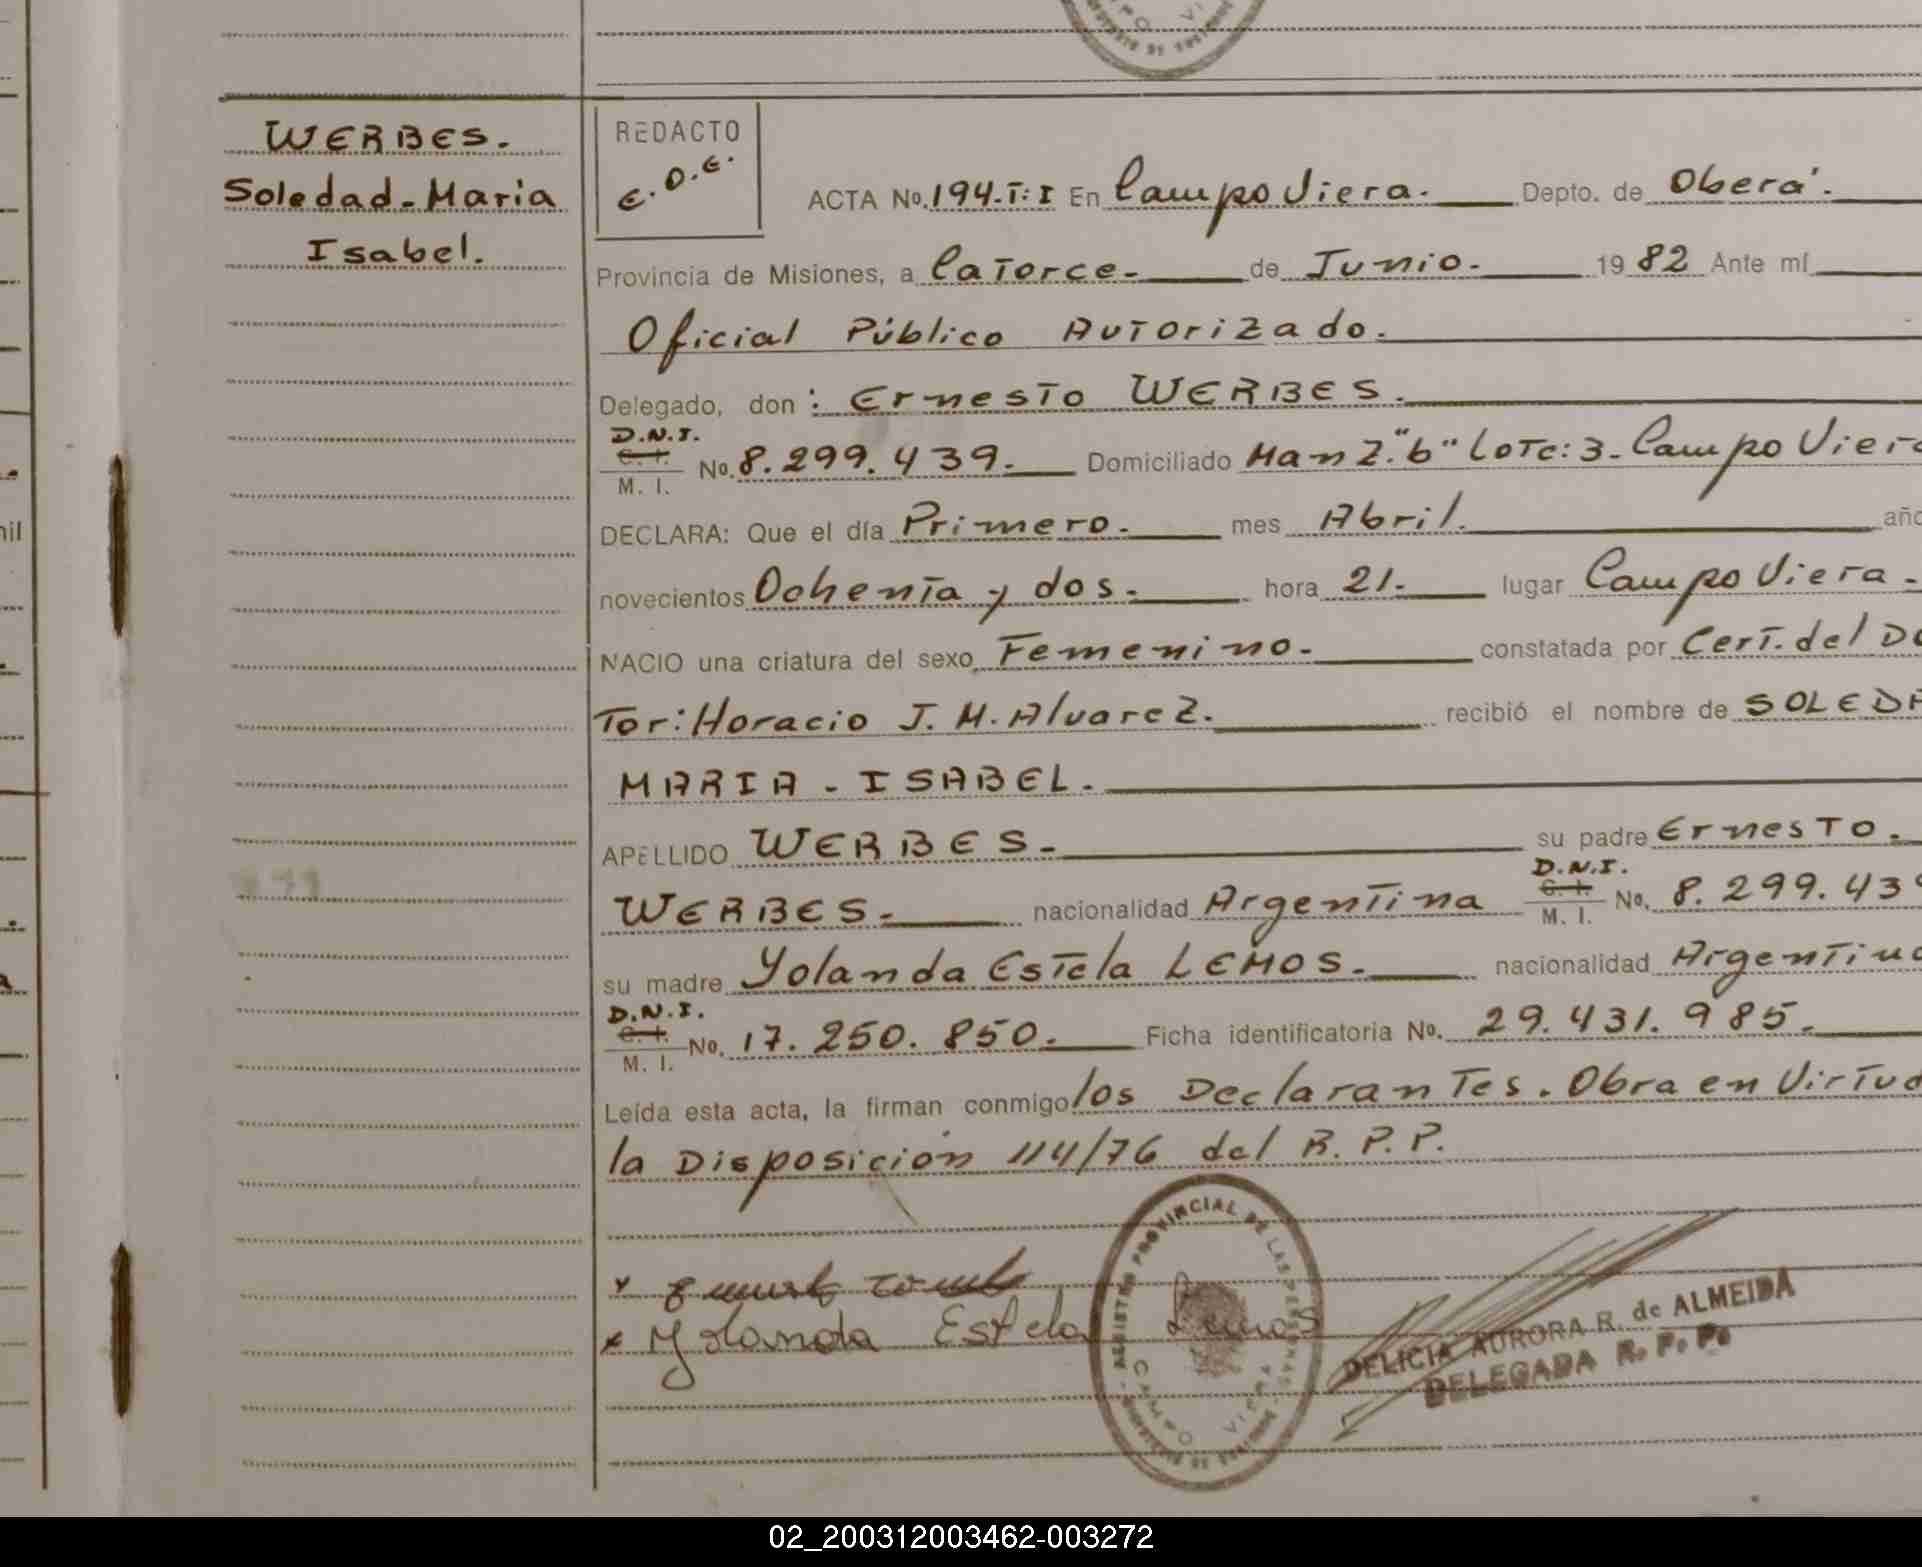 WERBES.
Soledad-Maria
Isabel.
REDACTO
E.O.E.
ACTA No. 194.T:I En Campo Viera. Depto. de Oberá.
Provincia de Misiones, a Catorce. de Junio. 1982 Ante mí
Oficial Público Autorizado.
Delegado, don: Ernesto WERBES.
D.N.I.
C. I.
M. I. No. 8.299.439. Domiciliado Manz."b" Lote:3-Campo Viera
DECLARA: Que el día Primero. mes Abril. año
novecientos Ochenta y dos. hora 21. lugar Campo Viera.
NACIO una criatura del sexo Femenino. constatada por Cert. del Do
Tor: Horacio J. M. Alvarez. recibió el nombre de SOLEDA
MARIA - ISABEL.
APELLIDO WERBES. su padre Ernesto.
WERBES. nacionalidad Argentina D.N.I. C. I. M. I. No. 8.299.439
su madre Yolanda Estela LEMOS. nacionalidad Argentina
D.N.I.
C. I.
M. I. No. 17.250.850. Ficha identificatoria No. 29.431.985.
Leída esta acta, la firman conmigo los Declarantes. Obra en Virtud
la Disposición 114/76 del R.P.P.
Yolanda Estela Lemos
REGISTRO PROVINCIAL DE LAS PERSONAS
CAMPO VIERA
DELICIA AURORA R. de ALMEIDA
DELEGADA R. P. P.
02_200312003462-003272